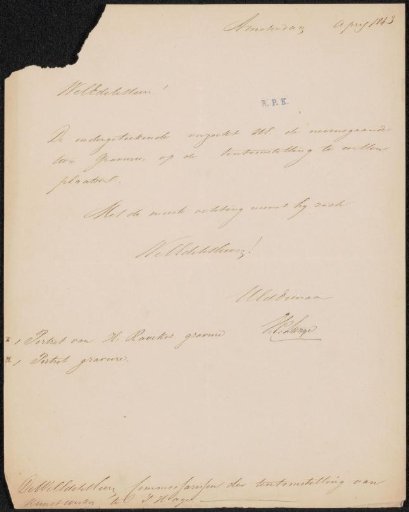 Amsterdam 6 april 1843
WelEdele Heer!
R.P.K.
De ondergeteekende verzoekt UE de nevensgaande
twee gravuren op de tentoonstelling te willen
plaatsen.
Met de meeste achting noemt hy zich
WelEdele Heer!
UEd Dienaar
1 Portret van H. gravure
1 Portret gravure.
De WelEdele Heeren Commissarissen der tentoonstelling van
kunstwerken te 's Hage